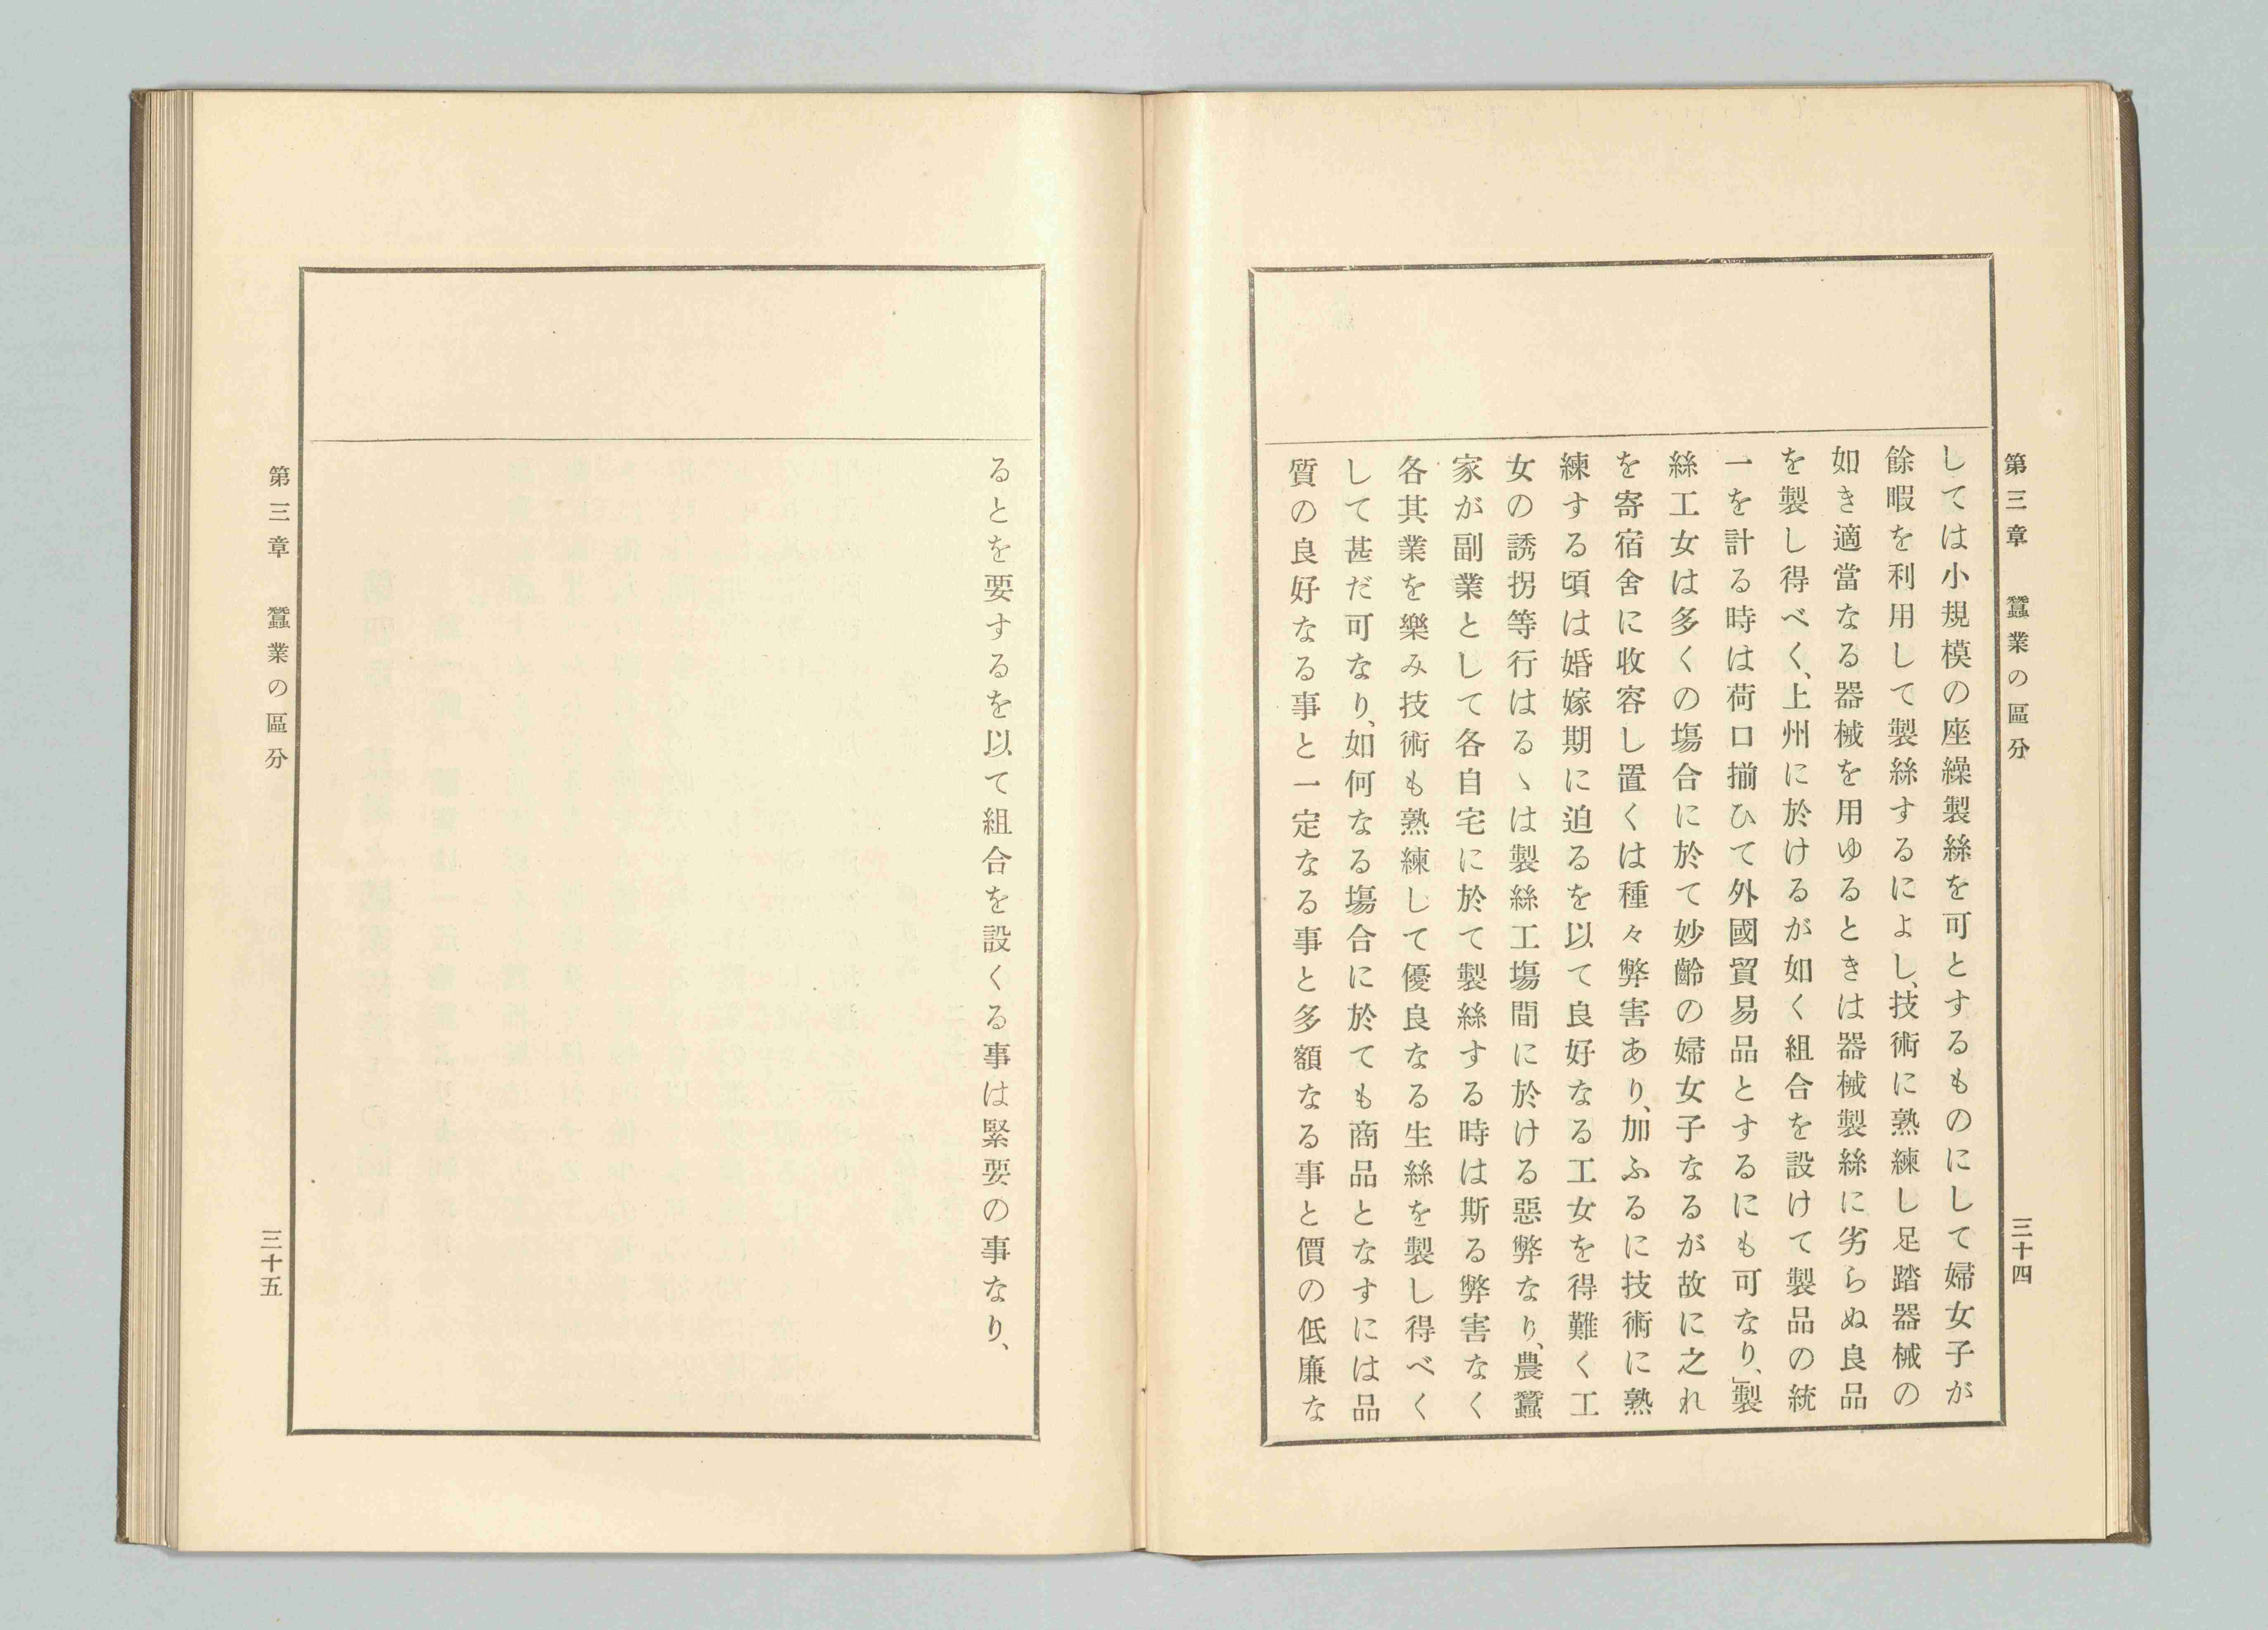 第三章　蠶業の區分
三十四
しては小規模の座繰製絲を可とするものにして婦女子が
餘暇を利用して製絲するによし、技術に熟練し足踏器械の
如き適當なる器械を用ゆるときは器械製絲に劣らぬ良品
を製し得べく、上州に於けるが如く組合を設けて製品の統
一を計る時は荷口揃ひて外國貿易品とするにも可なり、」製
絲工女は多くの塲合に於て妙齡の婦女子なるが故に之れ
を寄宿舍に收容し置くは種々弊害あり、加ふるに技術に熟
練する頃は婚嫁期に迫るを以て良好なる工女を得難く工
女の誘拐等行はるゝは製絲工塲間に於ける惡弊なり、農蠶
家が副業として各自宅に於て製絲する時は斯る弊害なく
各其業を樂み技術も熟練して優良なる生絲を製し得べく
して甚だ可なり、如何なる塲合に於ても商品となすには品
質の良好なる事と一定なる事と多額なる事と價の低廉な
るとを要するを以て組合を設くる事は緊要の事なり、
第三章　蠶業の區分
三十五